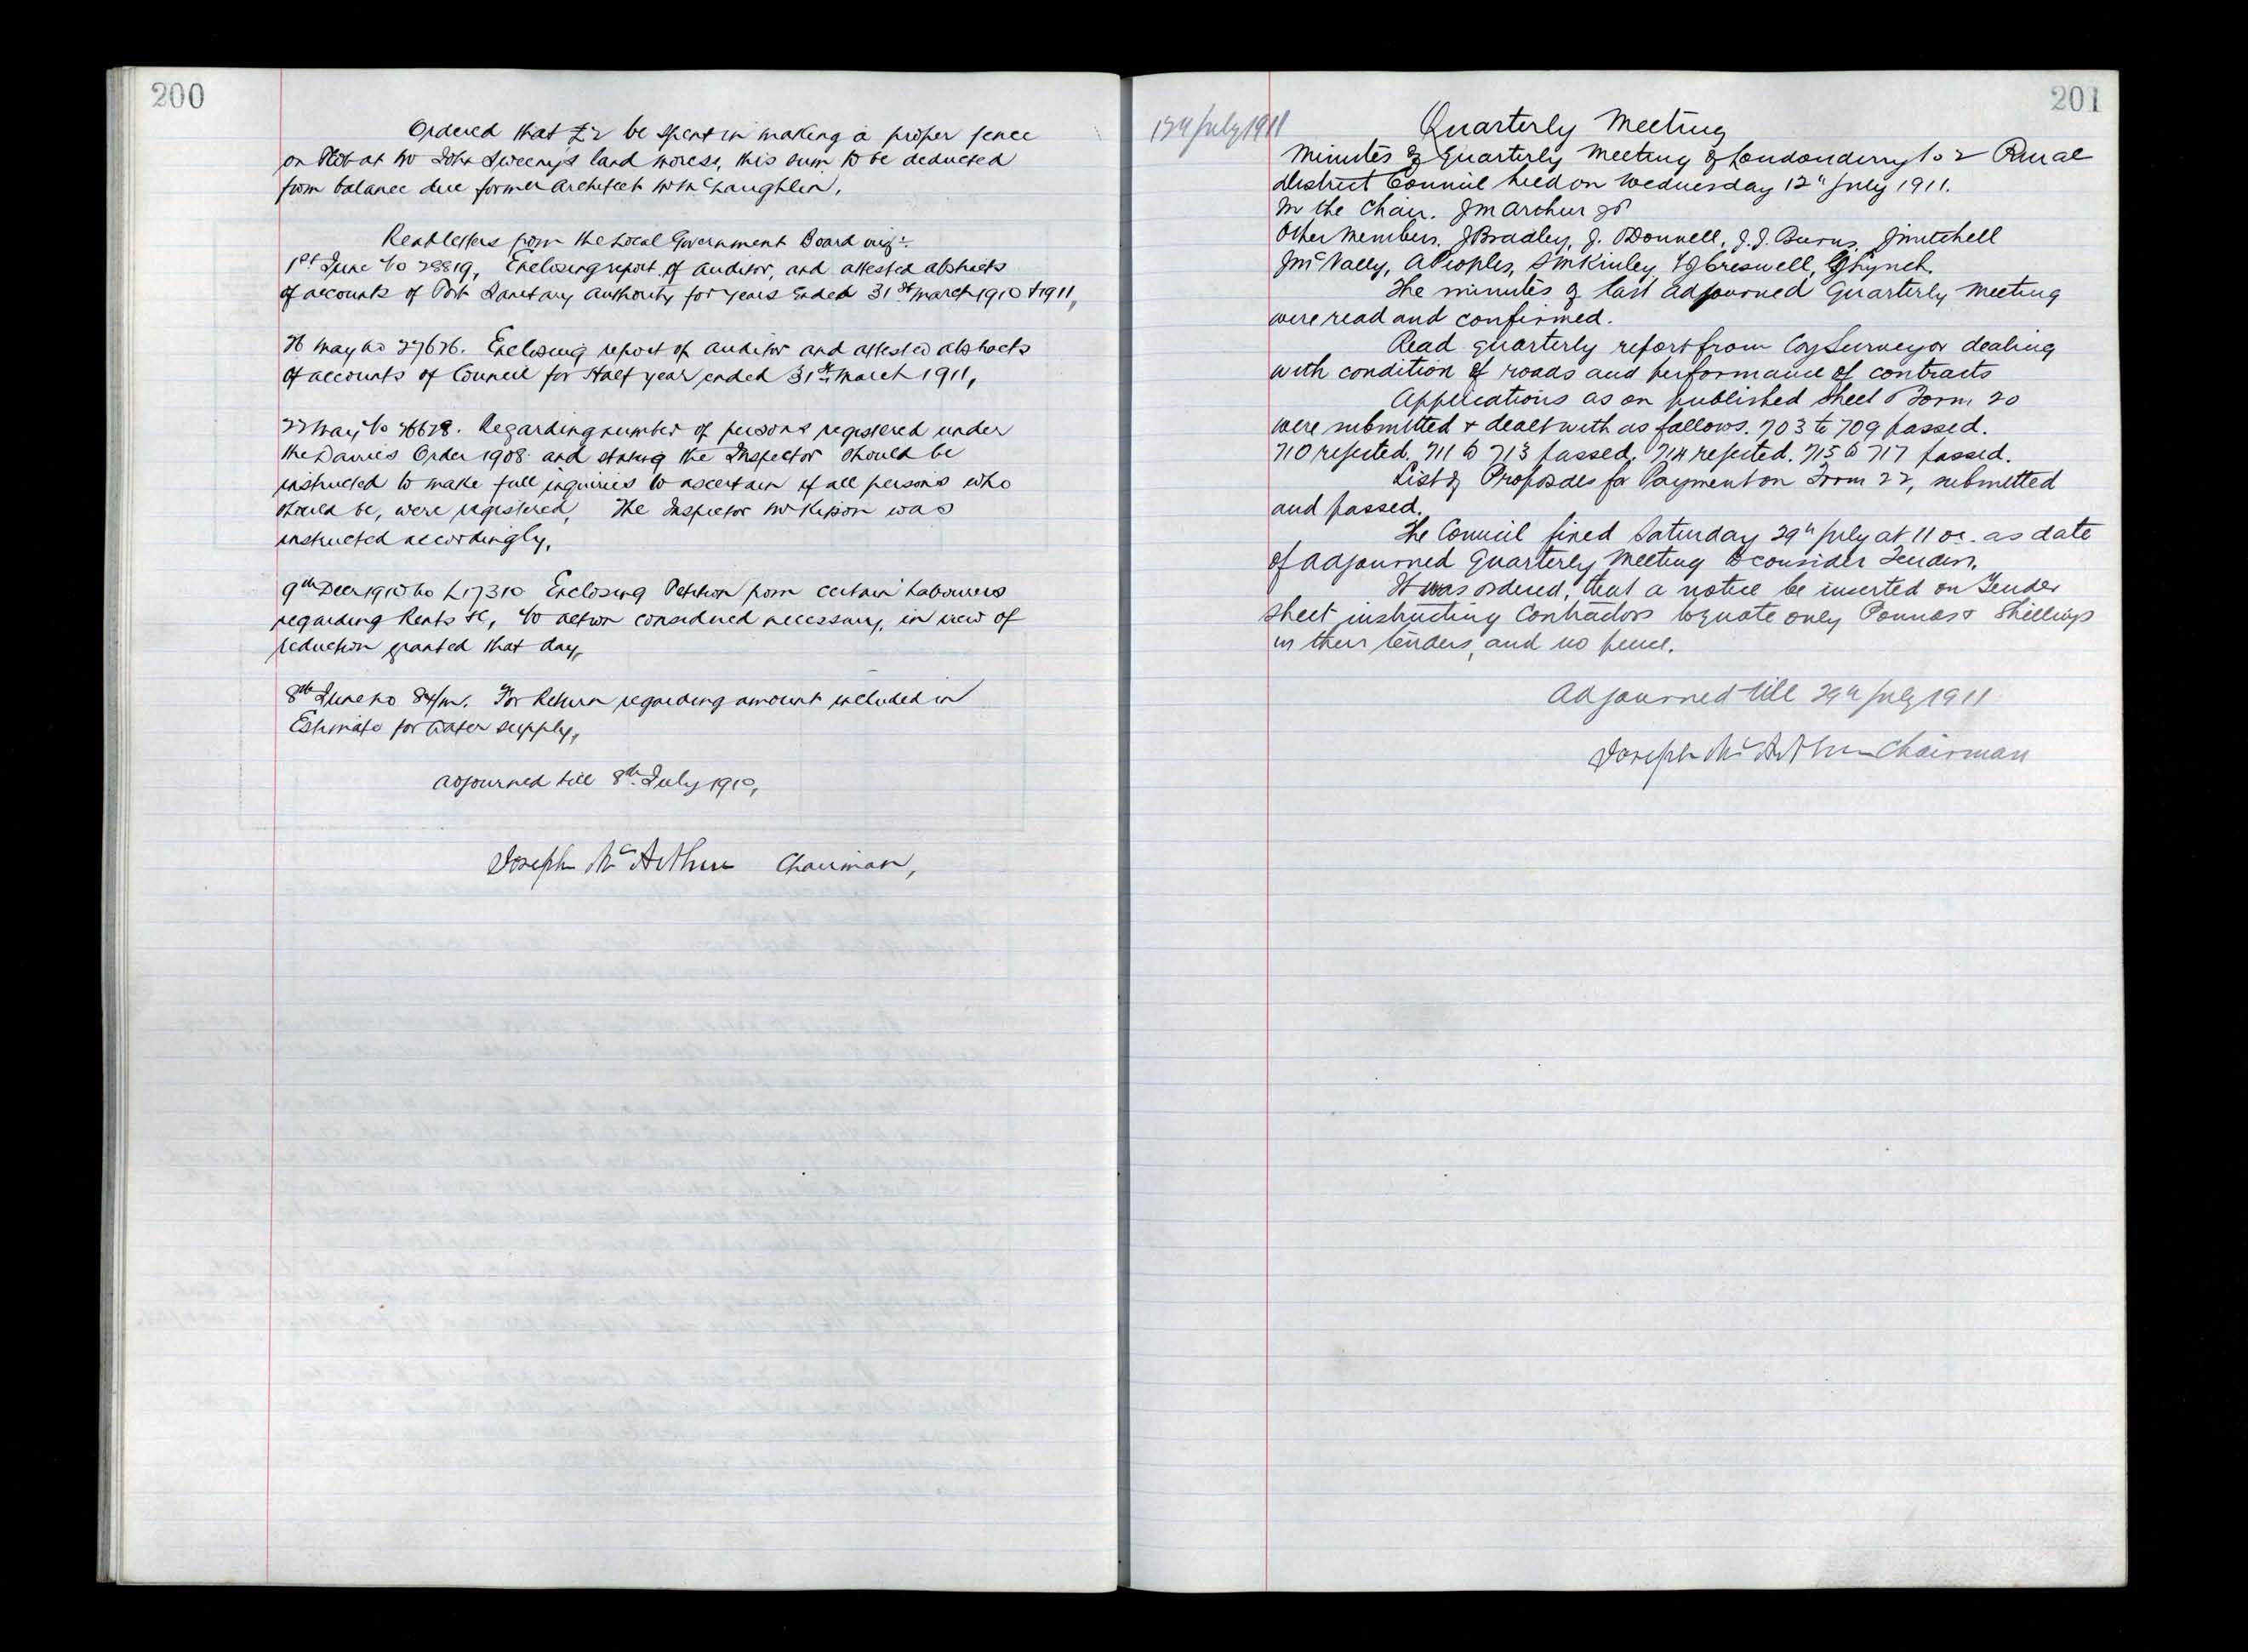 200
Ordered that £2 be spent in making a proper fence
on Plot at Mr John Sweenys land Moress, this sum to be deducted
from balance due former Architect Mr McLaughlin,
Read letters from the Local Government Board viz:-
1st June No 28819, Enclosing report of Auditor, and attested abstracts
of accounts of Port Sanitary Authority for years ended 31st March 1910 & 1911,
26 May No 27626. Enclosing report of Auditor and attested abstracts
of accounts of Council for Half year ended 31st March 1911,
22 May No 26628. Regarding number of persons registered under
the Dairies Order 1908 and stating the Inspector should be
instructed to make full inquiries to ascertain if all persons who
should be, were registered, The Inspector Mr was
instructed accordingly,
9th Decr 1910 No L17310 Enclosing Petition from certain Labourers
regarding Rents &c, No action considered necessary, in view of
reduction granted that day,
8th June No 84/M. For Return regarding amount included in
Estimate for water supply,
Adjourned till 8th July 1910,
Joseph McArthur Chairman,
201
12th July 1911
Quarterly Meeting
Minutes of Quarterly Meeting of Londonderry No 2 Rural
District Council held on Wednesday 12th July 1911.
In the Chair. J McArthur JP
Other Members. J Bradley, J. O'Donnell, J. J. Burns, J Mitchell
J McNally, A Peoples, S McKinley, T J Creswell, G J Lynch.
The minutes of last adjourned Quarterly Meeting
were read and confirmed.
Read quarterly report from Coy Surveyor dealing
with condition of roads and performance of contracts
Applications as on published sheet Form 20
were submitted & dealt with as follows. 703 to 709 passed.
710 rejected, 711 to 713 passed, 714 rejected. 715 to 717 passed.
List of Proposals for Payment on Form 22, submitted
and passed.
The Council fixed Saturday 29th July at 11 oc. as date
of adjourned Quarterly Meeting to consider Tenders.
It was ordered, that a notice be inserted on Tender
Sheet instructing Contractors to quote only Pounds & Shillings
in their tenders, and no pence.
Adjourned till 29th July 1911
Joseph McArthur Chairman